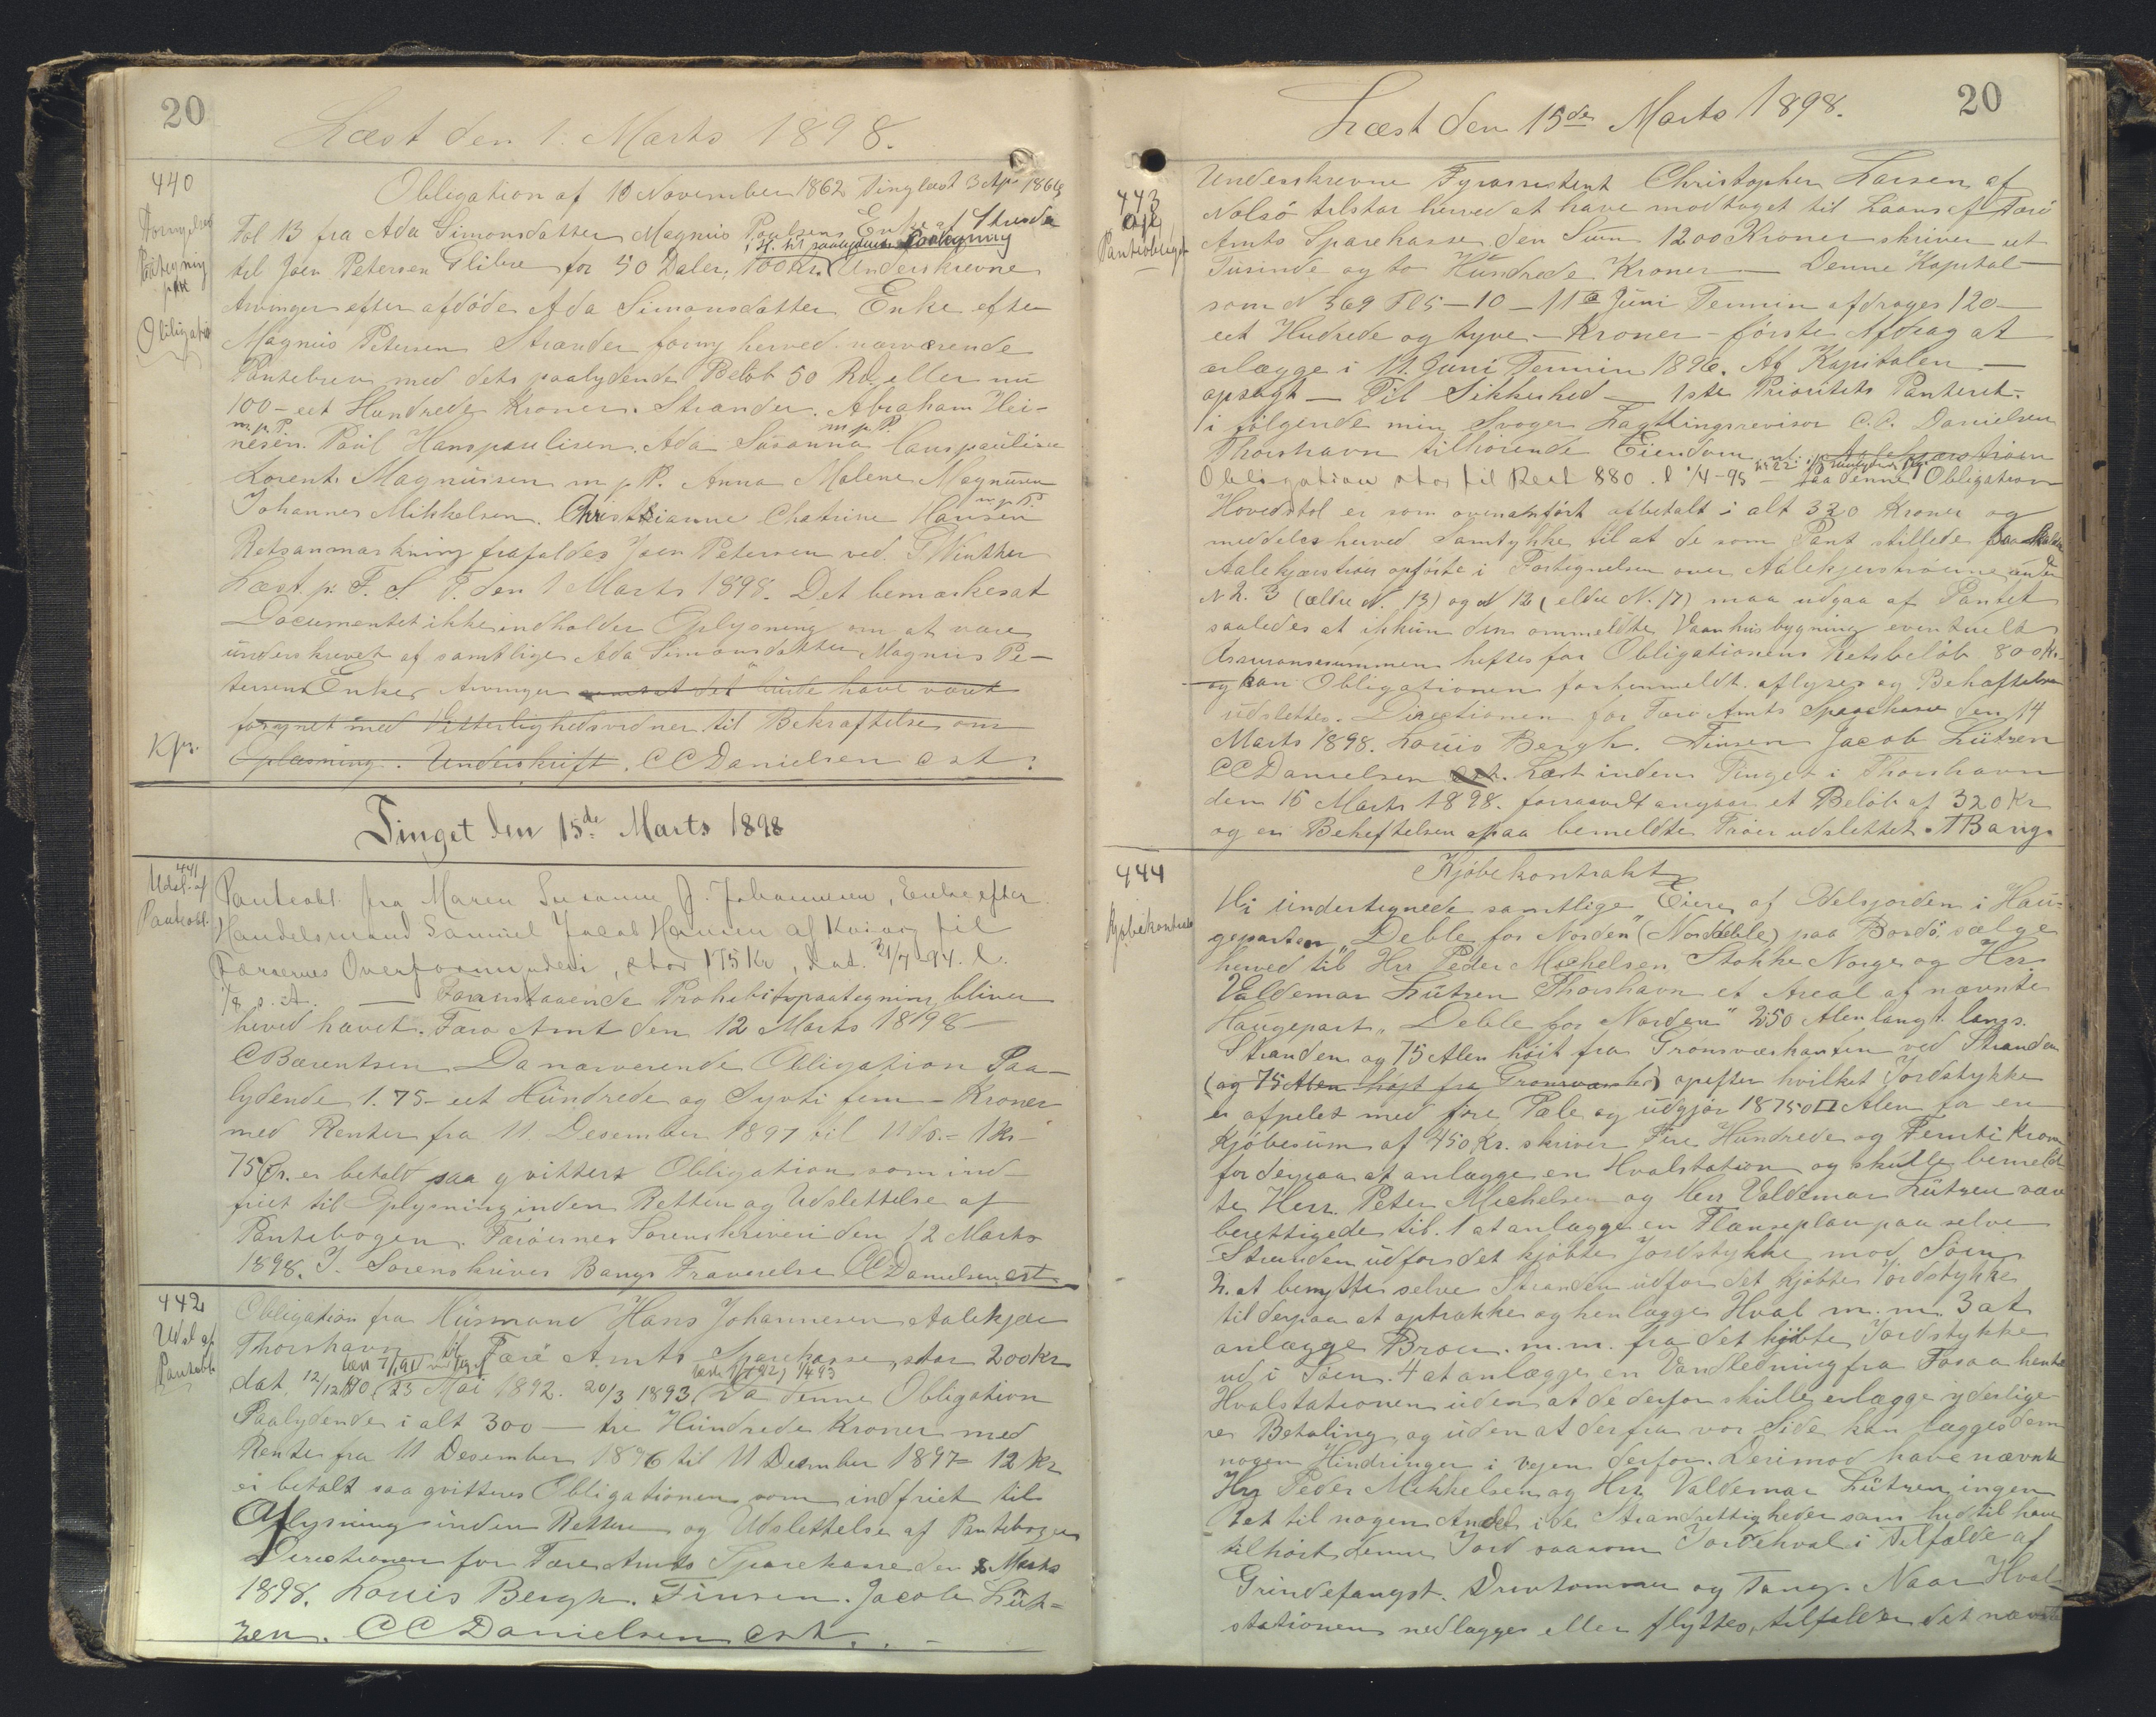 20
Læst den 1. Marts 1898.
440
Fornyelses
Paategning
paa
Obligation
Obligation af 10 November 1862 Tinglæst 3 Apr 1866
Fol 13 fra Ada Simonsdatter Magnus Poulsens Enke af Strender
i H. til saalydende Paategning
til Joen Petersen Glibre for 50 Daler, 100 Kr. Underskrevne
Arvinger efter afdøde Ada Simonsdatter Enke efter
Magnus Petersen Strænder forny herved nærværende
Pantebrev med dets paalydende Beløb 50 Rd. eller nu
100 - eet Hundrede Kroner. Strander. Abraham Hei-
m. p. P. m. p. P.
nesen. Poul Hanspaulisen. Ada Susanna Hanspaulisen
Lorent. Magnusen m p P. Anna Malene Magnusen
m. p. P.
Johannes Mikkelsen. Christianne Chatrine Hansen
Retsanmærkning frafaldes Joen Petersen ved P. Winther
Læst p. F. S. T. den 1 Marts 1898. Det bemærkes at
Documentet ikke indholder Oplysning om at være
underskrevet af samtlige Ada Simonsdatter Magnus Pe-
tersens Enkes Arvinger samt at det burde have været
forsynet med Vitterlighedsvidner til Bekræftelse om
Oplæsning. Underskrift. CCDanielsen cst.
Kfr.
Tinget den 15de Marts 1898
441
Udsl. af
Panteobl.
Panteobl. fra Maren Susanne J. Johannesen, Enke efter
Handelsmand Samuel Jacob Hansen af Kvivig til
Færøernes Overformynderi, stor 175 Kr, dat. 31/7 94. l.
1/8 s. A. — Foranstaaende Prohibitivpaategning bliver
herved hævet. Færø Amt den 12 Marts 1898 -
C Bærentsen Da nærværende Obligation Paa-
lydende 1.75 - eet Hundrede og Syvti fem - Kroner
med Renter fra 11 Desember 1897 til 11 ds. - 1 Kr -
75 Ør. er betalt saa qvitters Obligation som ind-
friet til Oplysning inden Retten og Udslettelse af
Pantebogen. Færøernes Sorenskriveri den 12 Marts
1898. I Sorenskriver Bangs Fraværelse CCDanielsen cst.
442
Udsl af
Panteobl.
Obligation fra Husmand Hans Johannesen Aalekjær
Thorshavn til Færø Amts Sparekasse, stor 200 Kr
dat. 12/12 90, 23 Mai 1892. 20/3 1893, Da denne Obligation
Paalydende i alt 300 — tre Hundrede Kroner med
Rente fra 11 Desember 1896 til 11 Desmber 1897 = 12 Kr
er betalt saa qvitteres Obligationen som indfriet til
Aflysning inden Retten og Udslettelse af Pantebogen
Directionen for Færø Amts Sparekasse den 8 Marts
1898. Louis Bergh. Finsen. Jacob Lüt-
zen. CC Danielsen cst.
20
Læst den 15de Marts 1898.
443
Afl
Panteobligat
Underskrevne Fyrassistent Christopher Larsen af
Nolsø tilstar herved at have modtaget til Laans af Færø
Amts Sparekasse den Sum 1200 Kroner skriver et
Tusinde og to Hundrede Kroner — Denne Kapital —
som N 369 F 65 - 10 - 11te Juni Termin afdrages 120 -
eet Hudrede og tyve - Kroner - første Afdrag at
erlægge i 11. Juni Termin 1896. Af Kapitalen —
opsagt — Til Sikkerhed — 1ste Prioritets Panteret -
i følgende min Svoger Lagtingsrevisor C. C. Danielsen
Thorshavn tilhørende Eiendom
Obligation stor til Rest 880. l 1/4 - 95 - Paa denne Obligation
Hovedstol er som ovenanført afbetalt i alt 320 Kroner og
meddeles herved Samtykke til at de som Pant stillede
Aalekjærstrøer opførte i Fortegnelsen over Aalekjerstrøerne under
N 2. 3 (ældre N. 13) og N 12 (eldre N. 17) maa udgaa af Pantet
saaledes at ikkun den ommeldte Vaanhusbygning eventuelt
Assuransesummen heftes for Obligationens Retsbeløb 880 Kr.
og kan Obligationen forhenmeldt aflyses og Behæftelsen
udslettes. Directionen for Færø Amts Sparekasse den 14
Marts 1898. Louis Bergh. Finsen Jacob Lützen
CCDanielsen cst. Læst inden Tinget i Thorshavn
den 15 Marts 1898. forsaavidt angaar et Beløb af 320 Kr
og er Beheftelsen paa bemeldte Trøer udslettet. A Bang
444
Kjøbekontrakt
Kjøbekontrakt
Vi undertegnede samtlige Eiere af Odelsjorden i Hau-
geparten „Deble for Norden" (Nordeble) paa Bordø, sælge
herved til Hr. Peder Michelsen Stokke Norge og Hr.
Valdemar Lützen Thorshavn et Areal af nævnte
Haugepart „Deble for Norden" 250 Alen langt langs.
Stranden og 75 Alen høit fra Grønsværskanten ved Stranden
(og 75 Alen højt fra Grønsværsker) opefter hvilket Jordstykke
er afpelet med fire Pæle og udgjør 18750 □ Alen for en
Kjøbesum af 450 Kr. skriver Fire Hundrede og Femti Kroner
for derpaa at anlægge en Hvalstation og skulle bemeld
te Herr. Peter Michelsen og Herr Valdemar Lützen være
berettigede til. 1 at anlægge en Flænseplan paa selve
Stranden udfor det kjøbte Jordstykke mod Søen
2. at benytte selve Stranden udfor det kjøbte Jordstykke
til derpaa at optrække og henlægge Hval m. m. 3 at
anlægge Broer. m. m. fra det kjøbte Jordstykke
ud i Søen. 4 at anlægge en Vandledning fra Fosaa hen til
Hvalstationen uden at de derfor skulle erlægge yderlige-
re Betaling og uden at der fra vor Side kan lægges dem
nogen Hindringer i vejen derfor. Derimod have nævnte
Hr Peder Mikkelsen og Hr. Valdemar Lützen ingen
Ret til nogen Andel i de Strandrettigheder som hidtil have
tilhørt denne Jord saasom Jordehval i Tilfælde af
Grindefangst. Drivtommer og Tang. Naar Hval-
stationen nedlægges eller flyttes, tilfalder det nævnte